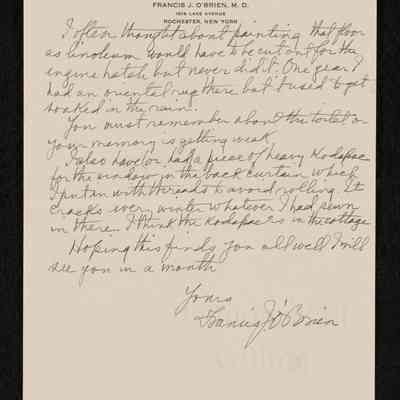 FRANCIS J. O'BRIEN, M. D.
1625 LAKE AVENUE
ROCHESTER, NEW YORK
I often thought about painting that floor
as linoleum would have to be cut out for the
engine hatch but never did it. One year I
had an oriental rug there but it used to get
soaked in the rain.
You must remember about the toilet or
your memory is getting weak.
I also have or had a piece of heavy Kodapac
for the window in the back curtain which
I put in with threads to avoid rolling. It
cracks over winter whatever I had sewn
in there. I think the Kodapac is in the cottage
Hoping this finds you all well I will
see you in a month
Yours
Francis J. O'Brien